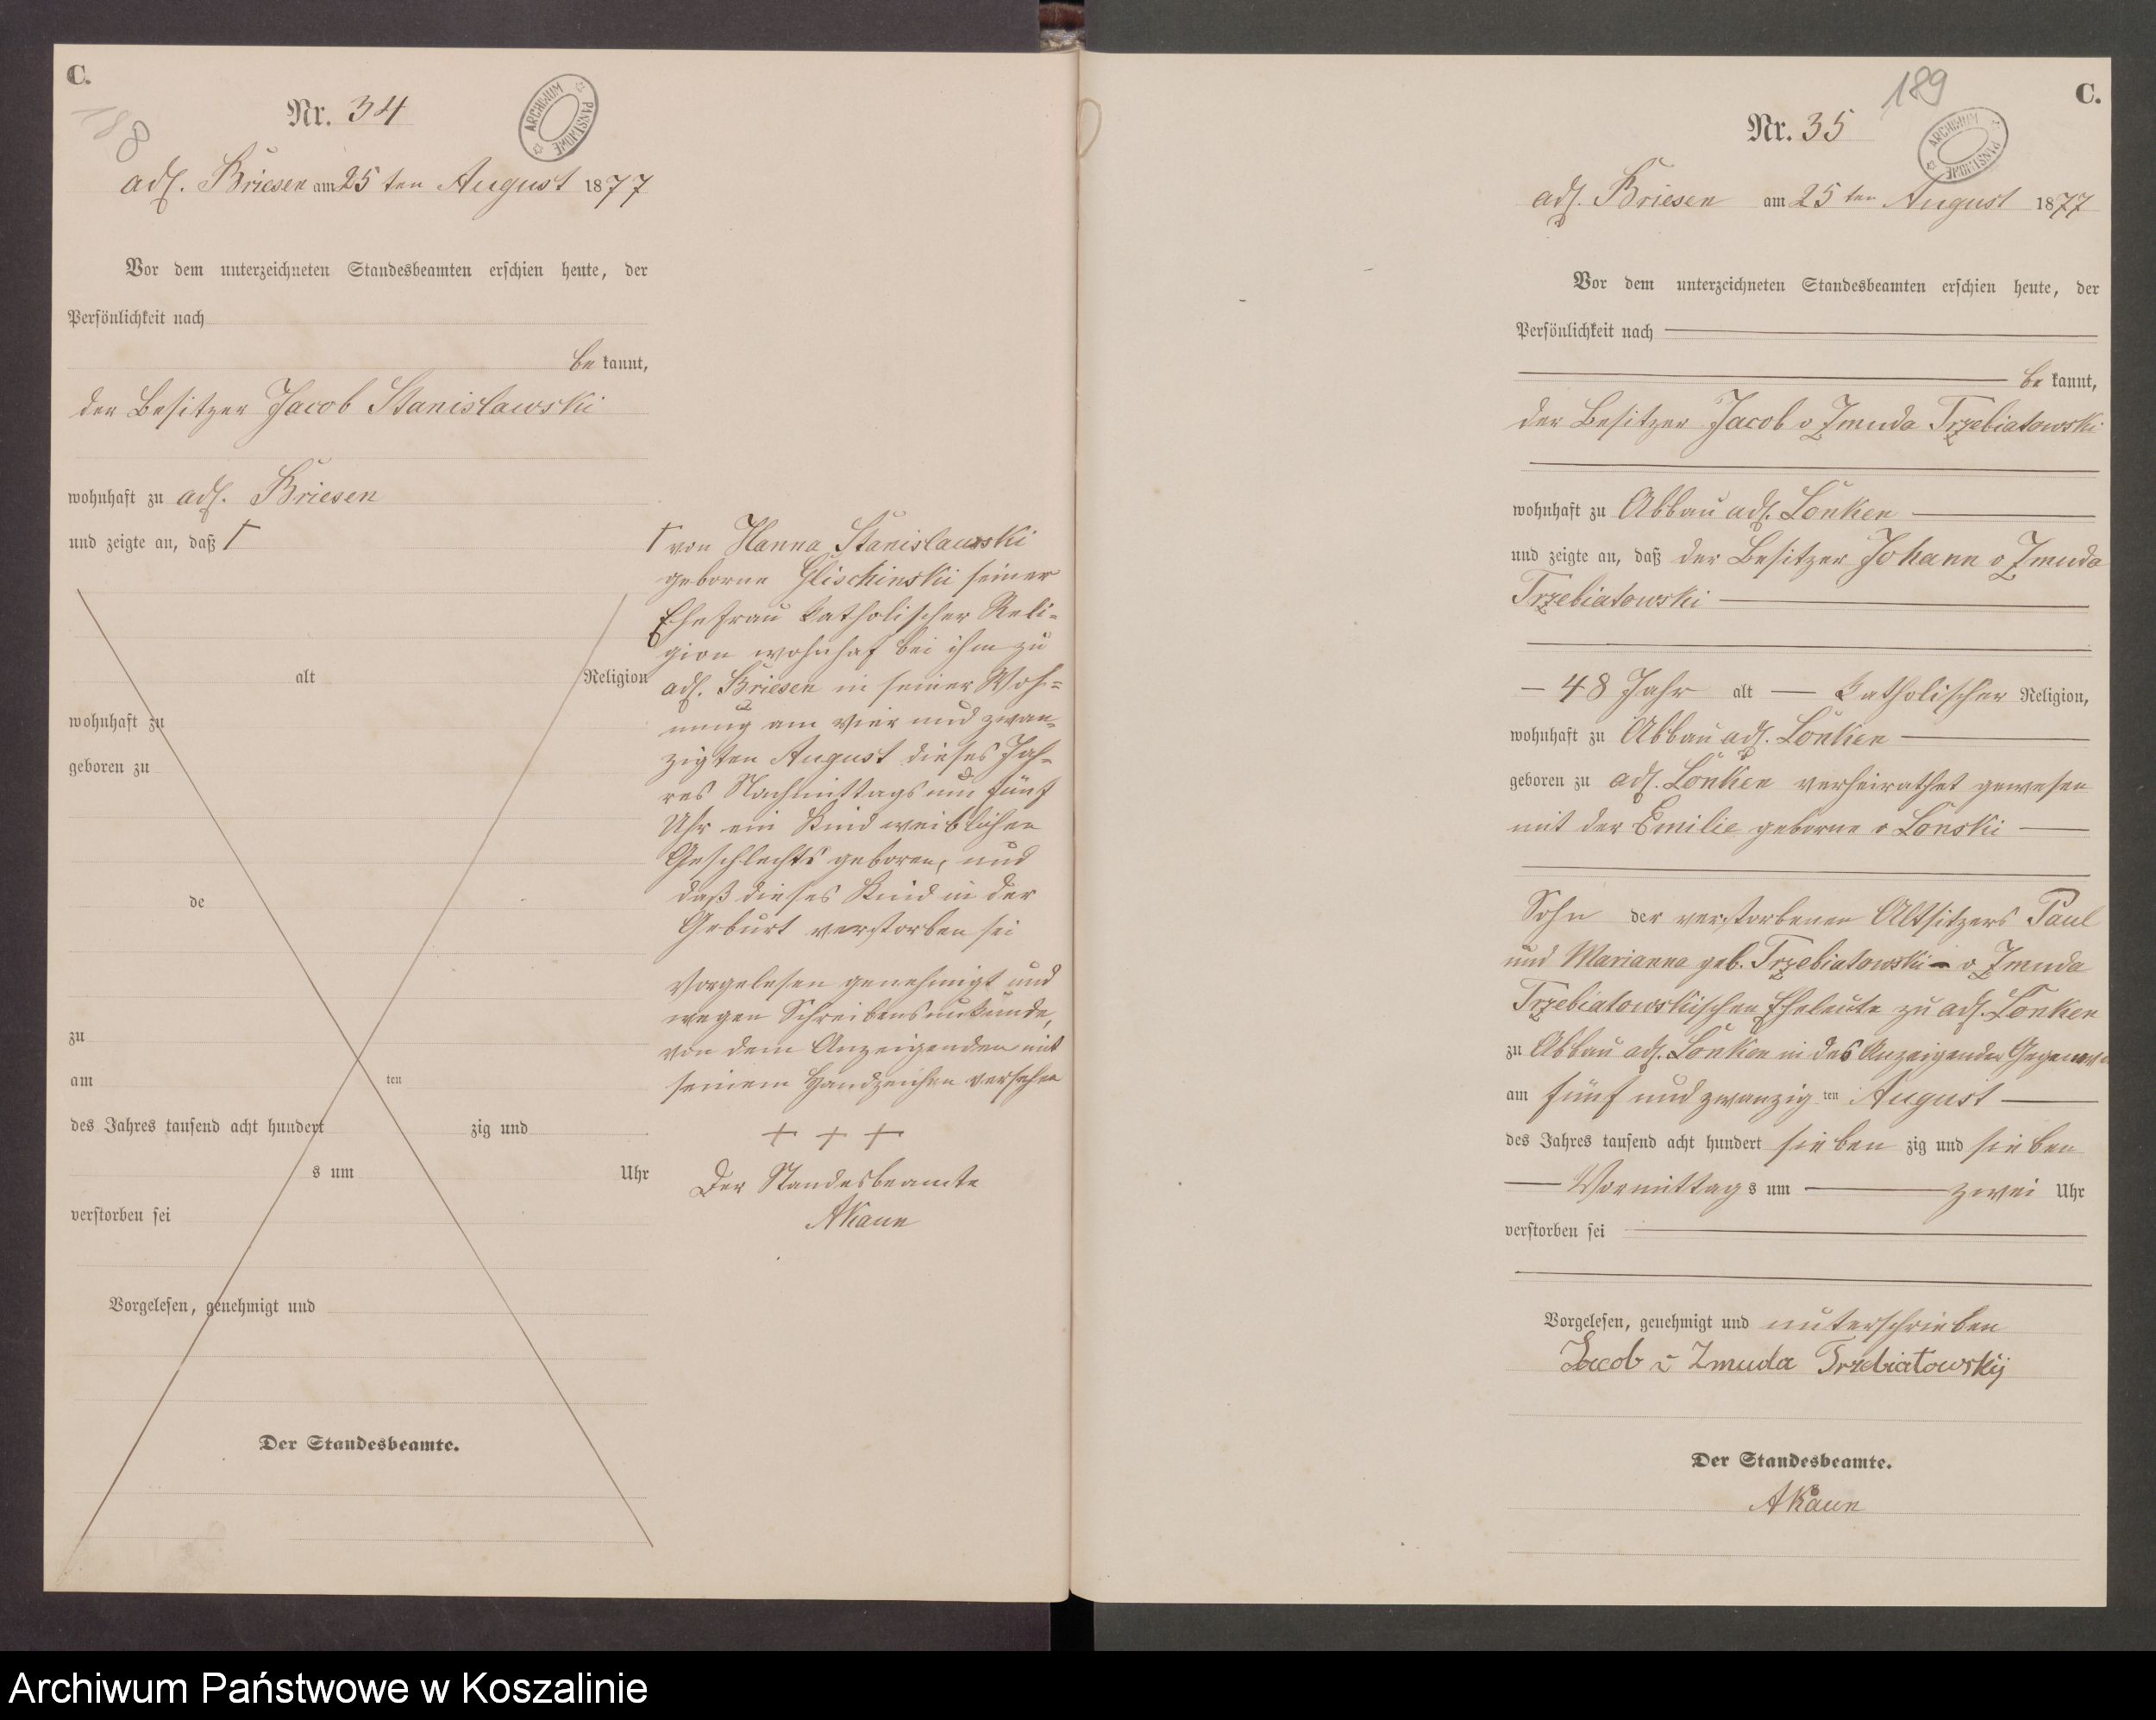 C.
188
Nr. 34
ARCHIWUM PAŃSTWOWE
adl. Briesen am 25 ten August 1877
Vor dem unterzeichneten Standesbeamten erschien heute, der
Persönlichkeit nach
be kannt,
der Besitzer Jacob Stanislawski
wohnhaft zu adl. Briesen
und zeigte an, daß †
alt Religion
wohnhaft zu
geboren zu
de
zu
am ten
des Jahres tausend acht hundert zig und
s um Uhr
verstorben sei
Vorgelesen, genehmigt und
Der Standesbeamte.
† von Hanna Stanislawski
geborne Glischinski seiner
Ehefrau katholischer Reli-
gion wohnhaf bei ihm zu
adl. Briesen in seiner Woh-
nung am vier und zwan-
zigten August dieses Jah-
res Nachmittags um fünf
Uhr ein Kind weiblichen
Geschlechts geboren, und
daß dieses Kind in der
Geburt verstorben sei
Vorgelesen genehmigt und
wegen Schreibensunkunde,
von dem Anzeigenden mit
seinem Handzeichen versehen
+ + +
Der Standesbeamte
AKaun
189
C.
Nr. 35
ARCHIWUM PAŃSTWOWE
adl. Briesen am 25 ten August 1877
Vor dem unterzeichneten Standesbeamten erschien heute, der
Persönlichkeit nach
be kannt,
der Besitzer Jacob v Zmuda Trzebiatowski
wohnhaft zu Abbau adl. Lonken
und zeigte an, daß der Besitzer Johann v Zmuda
Trzebiatowski
48 Jahr alt katholischer Religion,
wohnhaft zu Abbau adl. Lonken
geboren zu adl. Lonken verheirathet gewesen
mit der Emilie geborne v Lonski
Sohn der verstorbenen Altsitzers Paul
und Marianna geb. Trzebiatowski - v Zmuda
Trzebiatowskischen Eheleute zu adl. Lonken
zu Abbau adl. Lonken in des Anzeigenden
am fünf und zwanzig ten August
des Jahres tausend acht hundert sieben zig und sieben
Vormittag s um zwei Uhr
verstorben sei
Vorgelesen, genehmigt und unterschrieben
Jacob v Zmuda Trzebiatowskij
Der Standesbeamte.
AKaun
Archiwum Państwowe w Koszalinie